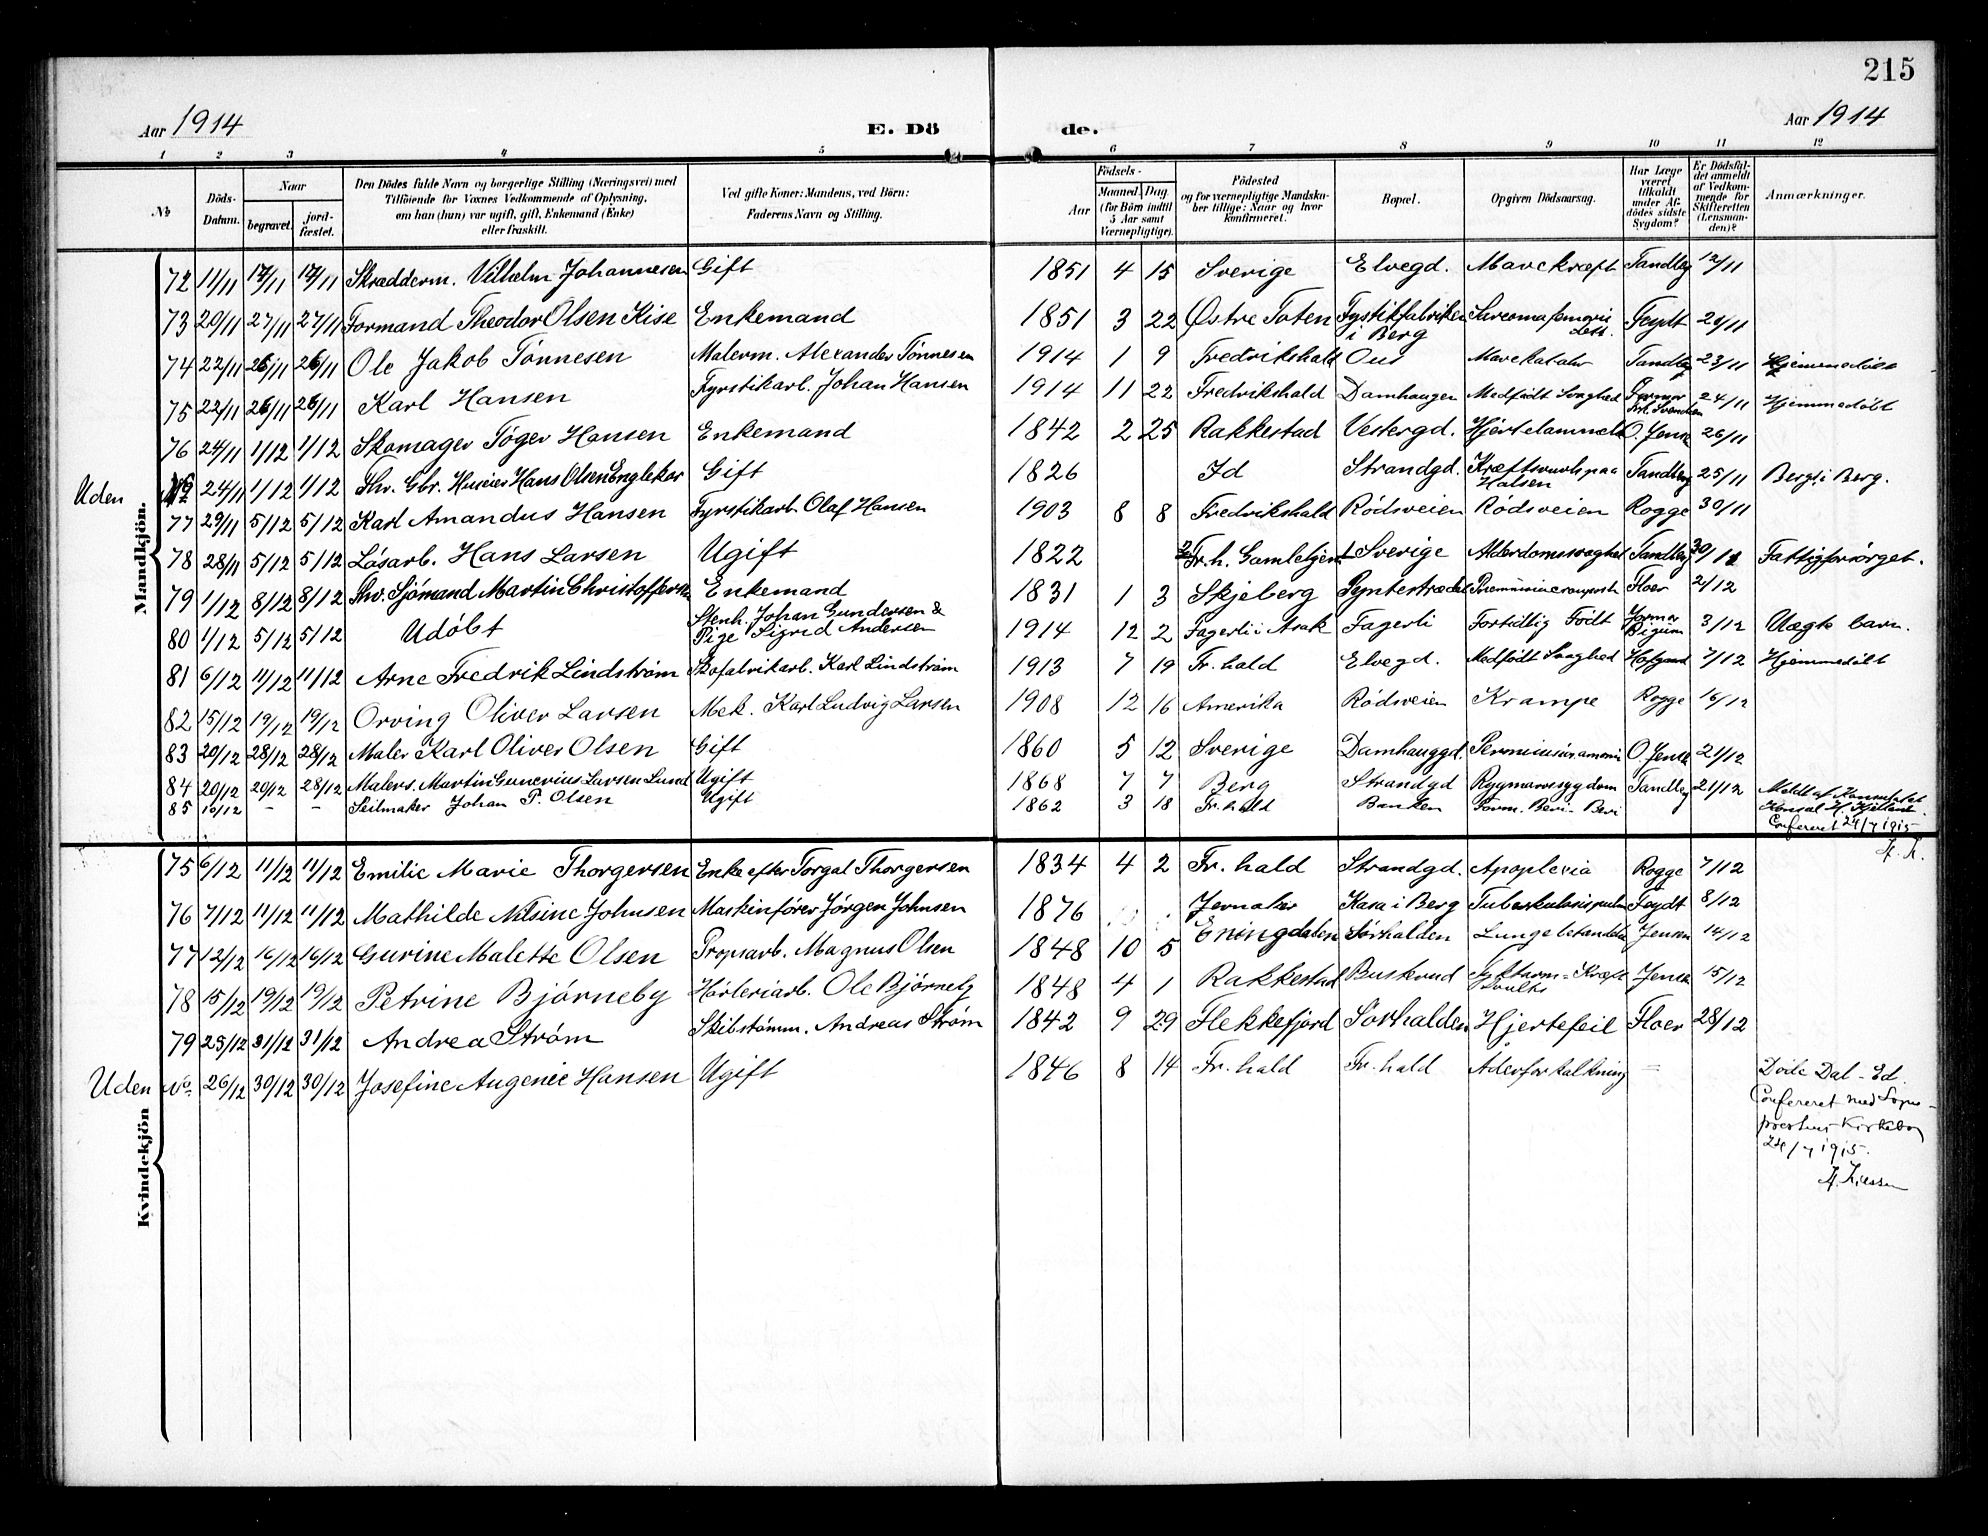 215
Aar 1914 E. Dö de. Aar 1914
1 2 3 4 5 6 7 8 9 10 11 12
№ Döds-Datum. Naar begravet. jord-fæstet. Den Dödes fulde Navn og borgerlige Stilling (Næringsvei) med Tilföiende for Voxnes Vedkommende af Oplysning, om han (hun) var ugift, gift, Enkemand (Enke) eller fraskilt. Ved gifte Koner: Mandens, ved Börn: Faderens Navn og Stilling. Födsels- Aar Maaned. Dag. (for Börn indtil 5 Aar samt Værnepligtige). Födested og for værnepligtige Mandskaber tillige: Naar og hvor konfirmeret. Bopæl. Opgiven Dödsaarsag. Har Læge været tilkaldt under Afdödes sidste Sygdom? Er Dödsfaldet anmeldt af Vedkommende for Skifteretten (Lensmanden)? Anmærkninger.
Mandkjön.
72 11/11 17/11 17/11 Skrædderm. Vilhelm Johannesen Gift 1851 4 15 Sverige Elvegd. Mavekræft Tandbg 12/11
73 20/11 27/11 27/11 Formand Theodor Olsen Kise Enkemand 1851 3 22 Østre Toten Fystikfabriken i Berg Sarcoma femoris Feydt 20/11
74 22/11 26/11 26/11 Ole Jakob Tønnesen Malerm. Alexander Tønnesen 1914 1 9 Fredrikshald Ous Mavekatar Tandbg 23/11 Hjemmedøbt
75 22/11 26/11 26/11 Karl Hansen Fyrstikarb. Johan Hansen 1914 11 22 Fredrikshald Damhaugen Medfødt Svaghed Jormor Frk. Svendsen 24/11 Hjemmedøbt
76 24/11 1/12 1/12 Skomager Töger Hansen Enkemand 1842 2 25 Rakkestad Vestergd. Hjertelammelse O. Jensen 26/11
Uden No 24/11 1/12 1/12 Fhv. Gbr. Huseier Hans Olsen Englekor Gift 1826 Id Strandgd. Kræftsvulst paa Halsen Tandbg 25/11 Bergt i Berg.
77 29/11 5/12 5/12 Karl Amandus Hansen Fyrstikarb. Olaf Hansen 1903 8 8 Fredrikshald Rödsveien Rödsveien Rogge 30/11
78 28/11 5/12 5/12 Løsarb. Hans Larsen Ugift 1822 Sverige Fr.h. Gamlehjem Alderdomssvaghed Tandbg 30/11 Fattigforsørget.
79 1/12 8/12 8/12 Fhv. Sjömand Martin Christoffersen Enkemand 1831 1 3 Skjeberg Synterstrædet Floer 2/12
80 1/12 5/12 5/12 Udöbt Stenh. Johan Gundersen & Pige Sigrid Andersen 1914 12 2 Fagerli i Asak Fagerli Fortidlig Födt Jormor 3/12 Uægte barn.
81 6/12 11/12 11/12 Arne Fredrik Lindstrøm Skofabrikarb. Karl Lindstrøm 1913 7 19 Fr.hald Elvegd. Medfødt Svaghed Hofgaard 7/12 Hjemmedöbt
82 15/12 19/12 19/12 Orving Oliver Larsen Mek. Karl Ludvig Larsen 1908 12 16 Amerika Rödsveien Krampe Rogge 16/12
83 20/12 28/12 28/12 Maler Karl Oliver Olsen Gift 1860 5 12 Sverige Damhauggd. Perniciösanæmi O. Jensen 21/12
84 20/12 20/12 28/12 Malers. Martin Gunerius Larsen Lund Ugift 1868 7 7 Berg Strandgd Rygmarvssygdom Tandbg 21/12
85 10/12 – – Seilmaker Johan P. Olsen Ugift 1862 3 18 Fr.hald Banken Form. Beri-Beri Meldt af Konsulatet Konsul H. Kjelland Confereret 24/7 1915 A. K.
Kvindekjön
75 6/12 11/12 11/12 Emilie Marie Thorgersen Enke efter Torgal Thorgersen 1834 4 2 Fr.hald Strandgd. Apoplexia Rogge 7/12
76 7/12 11/12 11/12 Mathilde Nilsine Johnsen Maskinfører Jørgen Johnsen 1876 Jevnaker Kasa i Berg Tuberkulosis pulm Feydt 8/12
77 12/12 16/12 16/12 Gurine Malette Olsen Propsarb. Magnus Olsen 1848 10 5 Eningdalen Sørhalden Lungebetændelse Jensen 14/12
78 15/12 19/12 19/12 Petrine Bjørneby Høvleriarb. Ole Bjørneby 1848 4 1 Rakkestad Buskerud Tyktarm-Kræft Jensen 15/12
79 25/12 31/12 31/12 Andrea Strøm Skibstømm. Andreas Strøm 1842 9 29 Flekkefjord Sørhalden Hjertefeil Floer 28/12
Uden No. 26/12 30/12 30/12 Josefine Augenie Hansen Ugift 1846 8 14 Fr.hald Fr.hald Aderforkalkning – Döde Dal - Ed. Confereret med Sogneprestens Kirkebog 24/7 1915. A. Kiessen